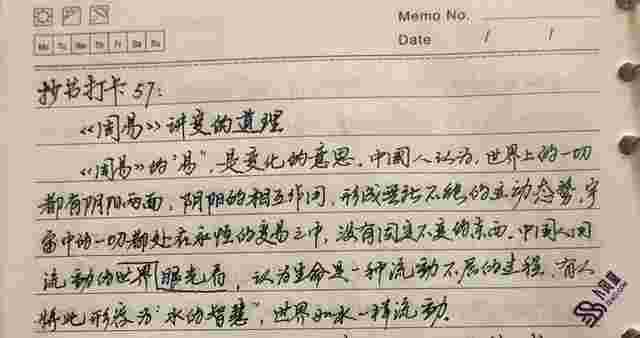 Memo No.
Date / /
Mo Tu We Th Fr Sa Su
抄书打卡57:
《周易》讲变的道理
《周易》的“易”,是变化的意思。中国人认为,世界上的一切
都有阴阳两面,阴阳的相互作用,形成无所不能的互动态势,宇
宙中的一切都处在永恒的变易之中,没有固定不变的东西。中国人用
流动的世界眼光看,认为生命是一种流动不居的过程。有人
将此形容为“水的智慧”,世界如水一样流动。